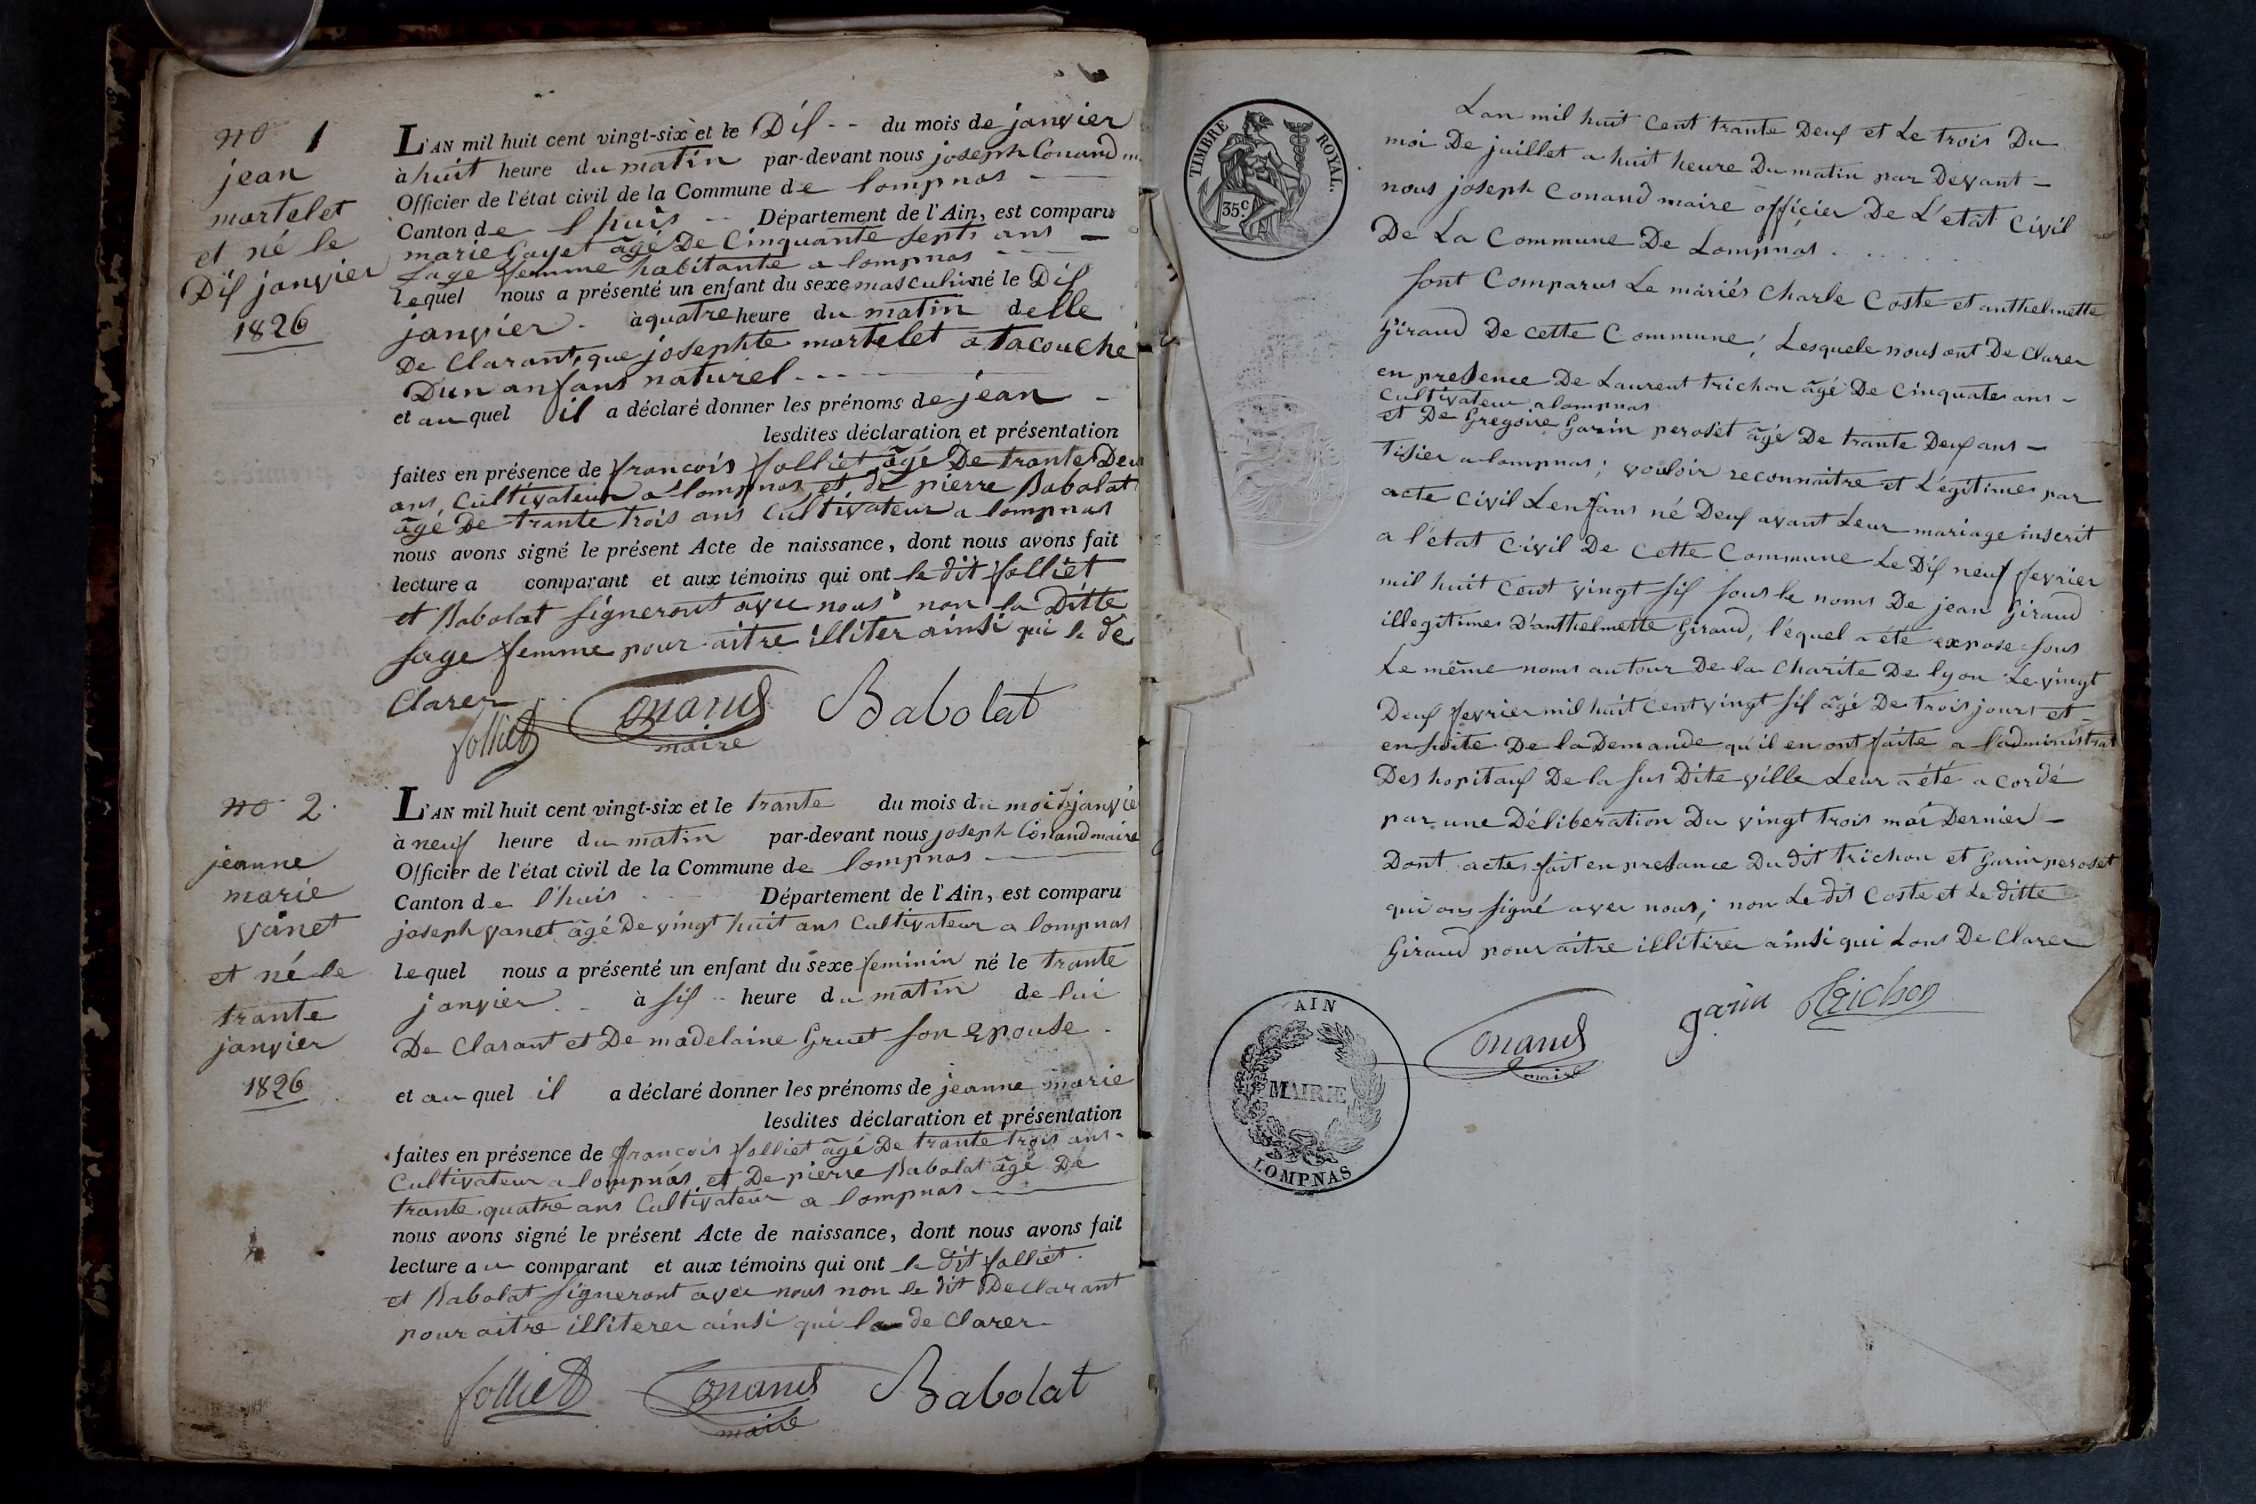 no 1
jean
martelet
et né le
Dix janvier
1826
L'AN mil huit cent vingt-six et le Dix - - du mois de janvier
à huit heure du matin par-devant nous joseph Conand
Officier de l'état civil de la Commune de lompnas
Canton de l huis Département de l'Ain, est comparu
marie Gayet âgé De Cinquante septs ans
sage femme habitante a lompnas
lequel nous a présenté un enfant du sexe masculin né le Dix
janvier à quatre heure du matin delle
De Clarant, que josephte martelet atacouche
Dun anfans naturel
et au quel il a déclaré donner les prénoms de jean
lesdites déclaration et présentation
faites en présence de francois folliet âgé De trante Deux
ans, Cultivateur a lompnas et de pierre Babolat
âgé De trante trois ans Cultivateur a lompnas
nous avons signé le présent Acte de naissance, dont nous avons fait
lecture a comparant et aux témoins qui ont le dit folliet
et Babolat signeront avec nous non la Ditte
sage femme pour aitre illiter ainsi qui la dé
Clarer
folliet Conand Babolat
maire
no 2
jeanne
marie
vanet
et né le
trante
janvier
1826
L'AN mil huit cent vingt-six et le trante du mois du mois janvie
à neuf heure du matin par-devant nous joseph Conand maire
Officier de l'état civil de la Commune de lompnas
Canton de l'huis Département de l'Ain, est comparu
joseph vanet âgé De vingt huit ans Cultivateur a lompnas
lequel nous a présenté un enfant du sexe feminin né le trante
janvier à six heure du matin de lui
De Clarant et De madelaine Gruet son Epouse
et au quel il a déclaré donner les prénoms de jeanne marie
lesdites déclaration et présentation
faites en présence de francois folliet âgé De trante trois ans
Cultivateur a lompnas, et De pierre Babolat âgé De
trante quatre ans Cultivateur a lompnas
nous avons signé le présent Acte de naissance, dont nous avons fait
lecture au comparant et aux témoins qui ont le dit folliet
et Babolat signeront avec nous non le dit Declarant
pour aitre illiterer ainsi qui la de Clarer
folliet Conand Babolat
maire
TIMBRE ROYAL.
35.c
Lan mil huit Cent trante Deux et Le trois Du
moi De juillet a huit heure Du matin par Devant
nous joseph Conand maire officier De L'etat Civil
De La Commune De Lompnas
sont Comparus Le mariés Charle Coste et anthelmette
Giraud De cette Commune; Lesquele nous ont De Clarer
en presence De Laurent trichon âgé De Cinquates ans
Cultivateur a lompnas
et De Gregoire Garin peroset âgé De trante Deux ans
tisier a lompnas; vouloir reconnaitre et Légitimes par
acte Civil Lenfans né Deux avant Leur mariage inscrit
a l'état Civil De Cette Commune Le Dix neuf fevrier
mil huit Cent vingt six sous le noms De jean Giraud
illegitimes D'anthelmette Giraud, léquel a été expose sous
Le même noms au tour De la Charite De lyon Le vingt
Deux fevrier mil huit Cent vingt six âgé De trois jours et
en suite De la Demande qu'il en ont faite a l'administrat
Des hopitaux De la sus Dite ville Leur a été a cordé
par une Déliberation Du vingt trois mai Dernier
Dont actes fait en presance Du dit trichon et Garin peroset
qui ons signé avec nous; non Le dit Coste et La ditte
Giraud pour aitre illitérer ainsi qui Lons De Clarer
Conand garin trichon
maire
AIN
MAIRIE
LOMPNAS